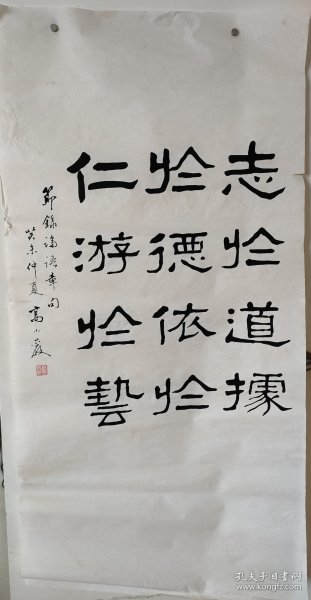 志於道據
於德依於
仁游於藝
節錄論語章句
癸未仲夏 高小巖
孔夫子旧书网
www.kongfz.com